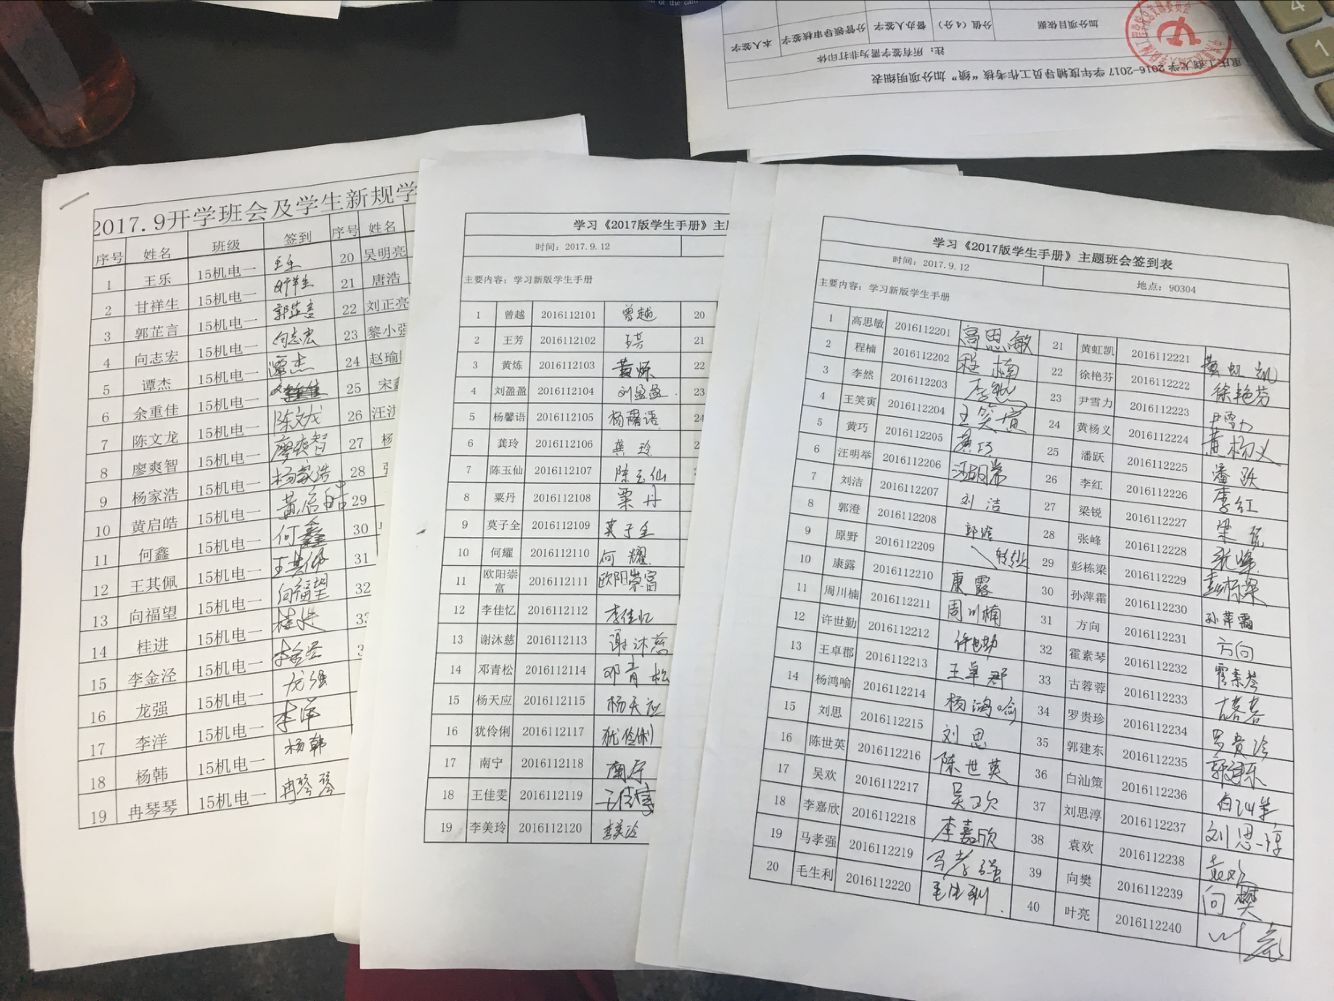 重庆工商大学 2016-2017 学年度辅导员工作考核“绩”加分项明细表
注：所有签字需为非打印体
加分项目依据 分值（4分） 督办人签字 分管领导审核签字 本人签字
2017.9开学班会及学生新规学
序号 姓名 班级 签到 序号 姓名
1 王乐 15机电一 王乐 20 吴明亮
2 甘祥生 15机电一 甘祥生 21 唐浩
3 郭芷言 15机电一 郭芷言 22 刘正亮
4 向志宏 15机电一 向志宏 23 黎小强
5 谭杰 15机电一 谭杰 24 赵瑜
6 余重佳 15机电一 25 宋
7 陈文龙 15机电一 陈文龙 26 汪洪
8 廖爽智 15机电一 廖爽智 27 杨
9 杨家浩 15机电一 杨家浩 28
10 黄启皓 15机电一 黄启皓 29
11 何鑫 15机电一 何鑫 30
12 王其佩 15机电一 王其佩 31
13 向福望 15机电一 向福望 32
14 桂进 15机电一 桂进
15 李金泾 15机电一 李金泾
16 龙强 15机电一 龙强
17 李洋 15机电一 李洋
18 杨韩 15机电一 杨韩
19 冉琴琴 15机电一 冉琴琴
学习《2017版学生手册》主
时间：2017.9.12
主要内容：学习新版学生手册
1 曾越 2016112101 曾越 20
2 王芳 2016112102 王芳 21
3 黄炼 2016112103 黄炼 22
4 刘盈盈 2016112104 刘盈盈 23
5 杨馨语 2016112105 杨馨语 24
6 龚玲 2016112106 龚玲
7 陈玉仙 2016112107 陈玉仙
8 粟丹 2016112108 粟丹
9 莫子全 2016112109 莫子全
10 何耀 2016112110 何耀
11 欧阳崇富 2016112111 欧阳崇富
12 李佳忆 2016112112 李佳忆
13 谢沐慈 2016112113 谢沐慈
14 邓青松 2016112114 邓青松
15 杨天应 2016112115 杨天应
16 犹伶俐 2016112117 犹伶俐
17 南宁 2016112118 南宁
18 王佳雯 2016112119 王佳雯
19 李美玲 2016112120 李美玲
学习《2017版学生手册》主题班会签到表
时间：2017.9.12 地点：90304
主要内容：学习新版学生手册
1 高思敏 2016112201 高思敏 21 黄虹凯 2016112221 黄虹凯
2 程楠 2016112202 程楠 22 徐艳芬 2016112222 徐艳芬
3 李然 2016112203 李然 23 尹雪力 2016112223 尹雪力
4 王笑寅 2016112204 王笑寅 24 黄杨义 2016112224 黄杨义
5 黄巧 2016112205 黄巧 25 潘跃 2016112225 潘跃
6 汪明举 2016112206 汪明举 26 李红 2016112226 李红
7 刘洁 2016112207 刘洁 27 梁锐 2016112227 梁锐
8 郭澄 2016112208 郭澄 28 张峰 2016112228 张峰
9 原野 2016112209 转专业 29 彭栋梁 2016112229 彭栋梁
10 康露 2016112210 康露 30 孙萍霜 2016112230 孙萍霜
11 周川楠 2016112211 周川楠 31 方向 2016112231 方向
12 许世勤 2016112212 许世勤 32 霍素琴 2016112232 霍素琴
13 王卓郡 2016112213 王卓郡 33 古蓉蓉 2016112233 古蓉蓉
14 杨鸿喻 2016112214 杨鸿喻 34 罗贵珍 2016112234 罗贵珍
15 刘思 2016112215 刘思 35 郭建东 2016112235 郭建东
16 陈世英 2016112216 陈世英 36 白汕策 2016112236 白汕策
17 吴欢 2016112217 吴欢 37 刘思淳 2016112237 刘思淳
18 李嘉欣 2016112218 李嘉欣 38 袁欢 2016112238 袁欢
19 马孝强 2016112219 马孝强 39 向樊 2016112239 向樊
20 毛生利 2016112220 毛生利 40 叶亮 2016112240 叶亮